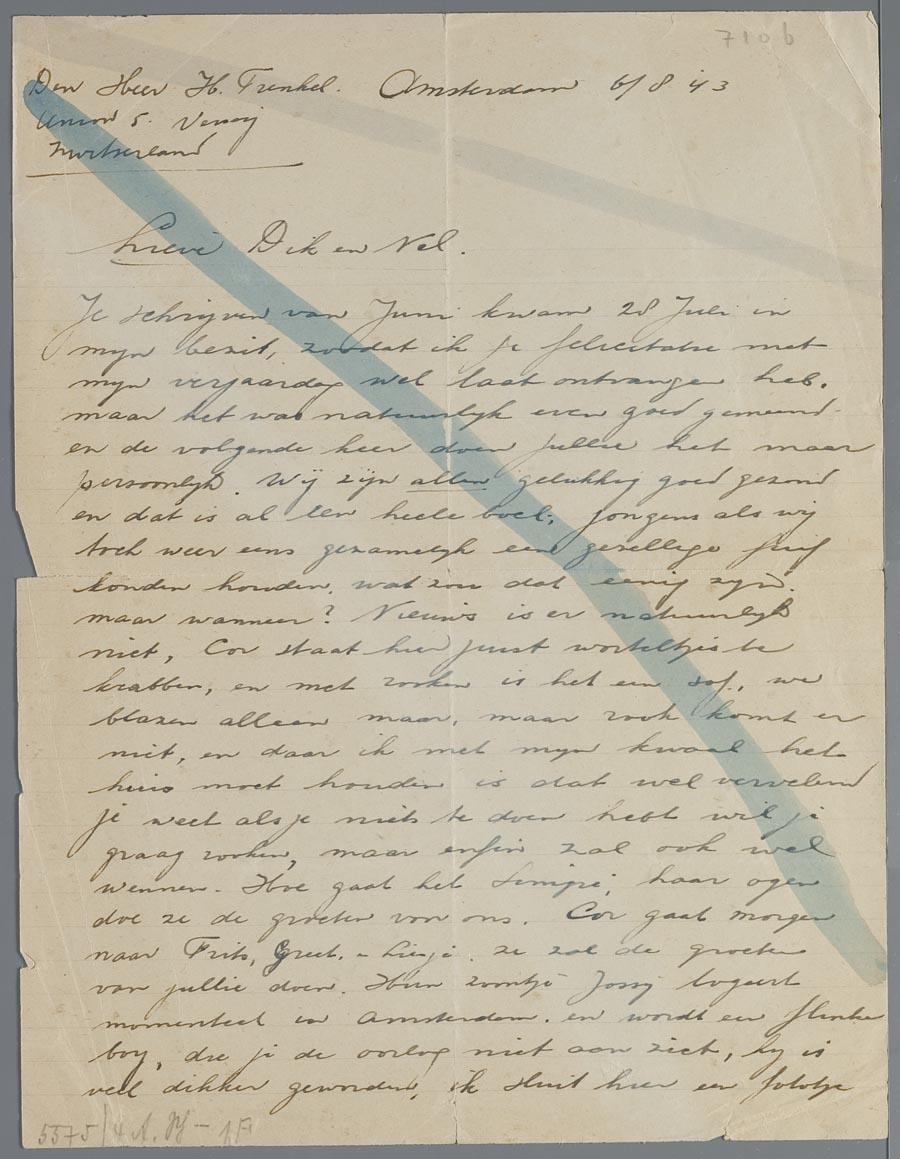 710b
Den Heer H. Frenkel. Amsterdam 6/8 '43
Union 5. Vevey
Zwitserland
Lieve Dik en Nel.
Je schrijven van Juni kwam 28 Juli in
mijn bezit, zoodat ik je felicitatie met
mijn verjaardag wel laat ontvangen heb.
maar het was natuurlijk even goed gemeend
en de volgende keer doen jullie het maar
persoonlijk. Wij zijn allen gelukkig goed gezond
en dat is al een heele boel, jongens als wij
toch weer eens gezamelijk een gezellige fuif
konden houden, wat zou dat eenig zijn.
maar wanneer? Nieuws is er natuurlijk
niet, Cor staat hier juist worteltjes te
krabben, en met rooken is het een sof, we
blazen alleen maar, maar rook komt er
niet, en daar ik met mijn kwaal het
huis moet houden is dat wel vervelend
je weet als je niets te doen hebt wil je
graag rooken, maar enfin zal ook wel
wennen. Hoe gaat het, haar ogen
doe ze de groeten van ons. Cor gaat morgen
naar Frits, Greet. ze zal de groeten
van jullie doen. Hun zoontje Jossy logeert
momenteel in Amsterdam. en wordt een flinke
boy, die je de oorlog niet aan ziet, hy is
veel dikker geworden, ik sluit hier een fototje
5575/4